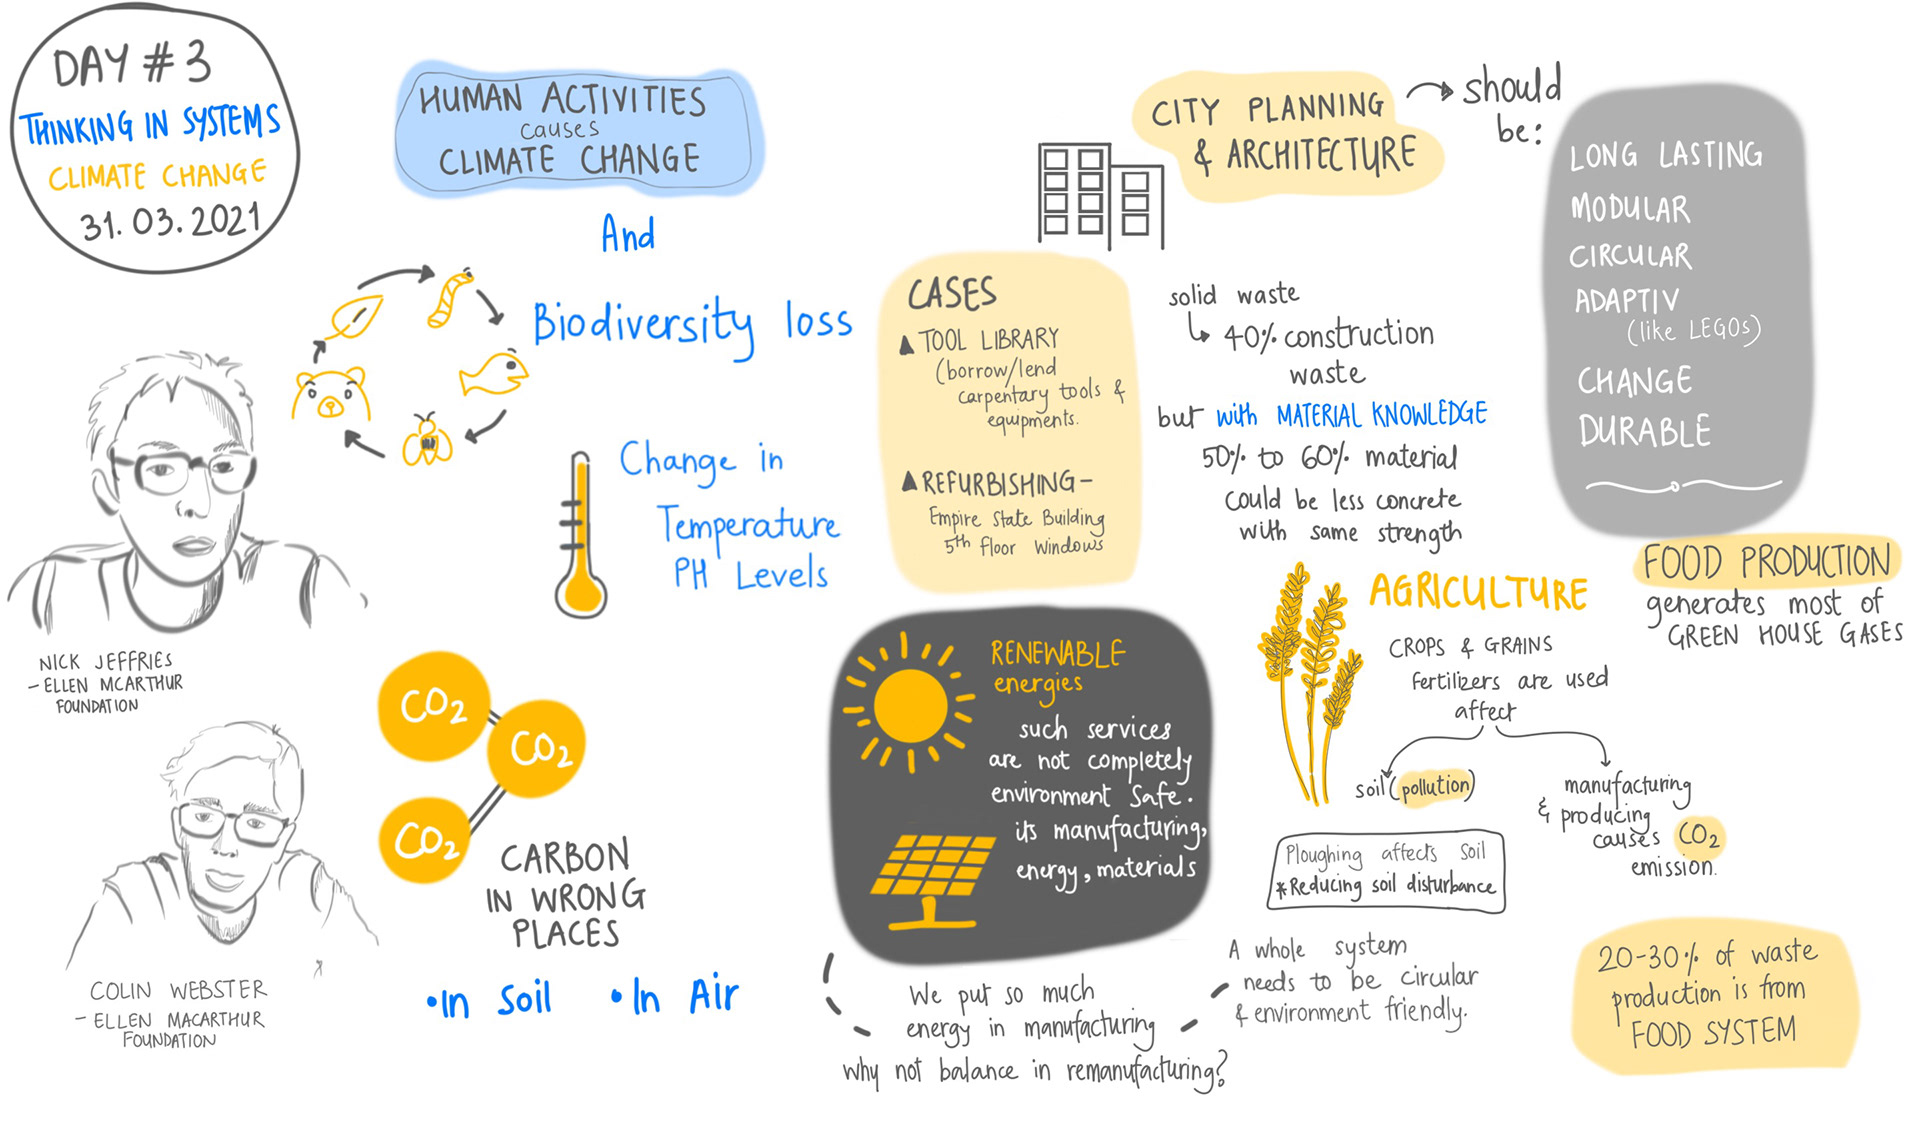 DAY # 3
THINKING IN SYSTEMS
CLIMATE CHANGE
31.03.2021
HUMAN ACTIVITIES
causes
CLIMATE CHANGE
And
Biodiversity loss
Change in
Temperature
PH Levels
NICK JEFFRIES
- ELLEN MCARTHUR
FOUNDATION
COLIN WEBSTER
- ELLEN MACARTHUR
FOUNDATION
CO2
CO2
CO2
CARBON
IN WRONG
PLACES
•In Soil
•In Air
CITY PLANNING
& ARCHITECTURE
should
be:
LONG LASTING
MODULAR
CIRCULAR
ADAPTIV
(like LEGOs)
CHANGE
DURABLE
CASES
TOOL LIBRARY
(borrow/lend
carpentary tools &
equipments.
REFURBISHING-
Empire State Building
5th floor Windows
solid waste
40% construction
waste
but with MATERIAL KNOWLEDGE
50% to 60% material
Could be less concrete
with same strength
RENEWABLE
energies
such services
are not completely
environment Safe.
its manufacturing,
energy, materials
We put so much
energy in manufacturing
why not balance in remanufacturing?
A whole system
needs to be circular
& environment friendly.
AGRICULTURE
CROPS & GRAINS
Fertilizers are used
affect
soil (pollution)
manufacturing
& producing
causes CO2
emission.
Ploughing affects Soil
*Reducing soil disturbance
FOOD PRODUCTION
generates most of
GREEN HOUSE GASES
20-30% of waste
production is from
FOOD SYSTEM